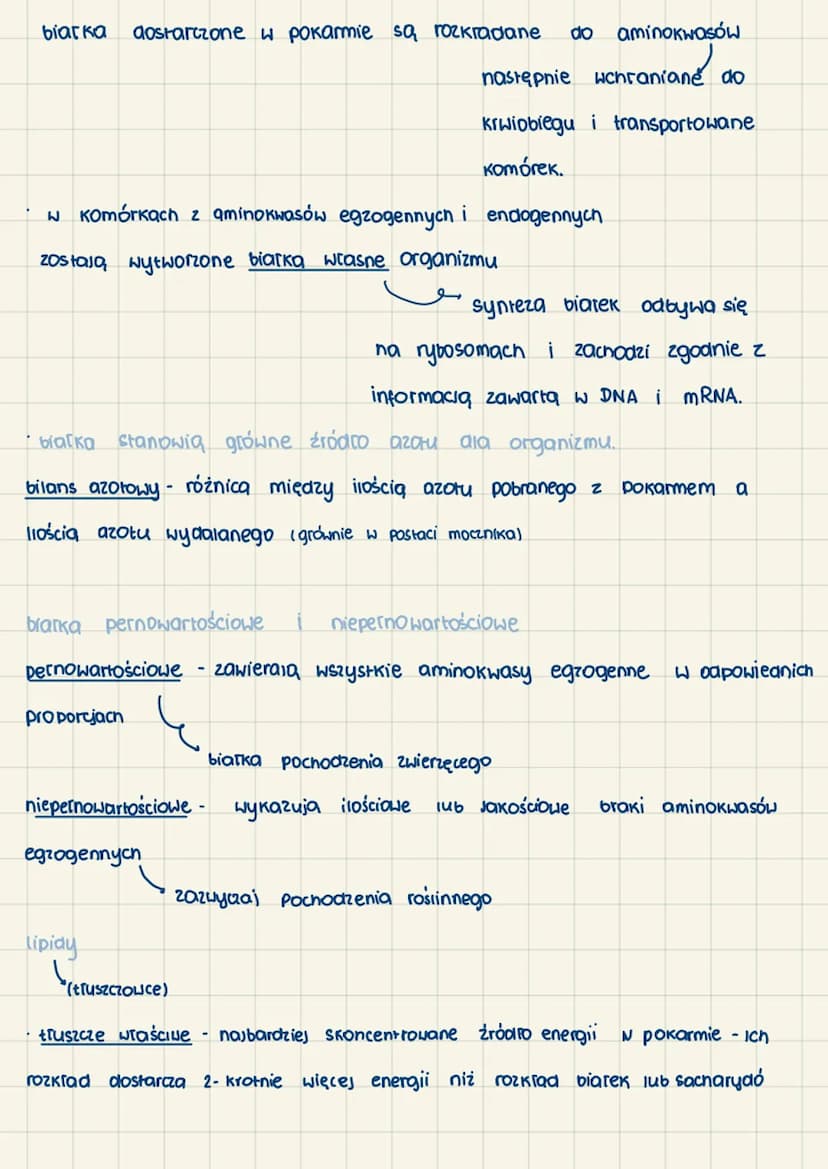 białka dostarczone w pokarmie są rozkładane do aminokwasów
następnie wchłaniane do
krwiobiegu i transportowane
komórek.
· w komórkach z aminokwasów egzogennych i endogennych
zostają wytworzone białka własne organizmu
synteza białek odbywa się
na rybosomach i zachodzi zgodnie z
informacją zawartą w DNA i mRNA.
· białka stanowią główne źródło azotu dla organizmu.
bilans azotowy - różnica między ilością azotu pobranego z pokarmem a
ilością azotu wydalanego (głównie w postaci mocznika)
białka pełnowartościowe i niepełnowartościowe
pełnowartościowe - zawierają wszystkie aminokwasy egzogenne w odpowiednich
proporcjach
białka pochodzenia zwierzęcego
niepełnowartościowe - wykazują ilościowe lub jakościowe braki aminokwasów
egzogennych
zazwyczaj pochodzenia roślinnego
lipidy
(tłuszczowce)
· tłuszcze właściwe - najbardziej skoncentrowane źródło energii w pokarmie - ich
rozkład dostarcza 2-krotnie więcej energii niż rozkład białek lub sacharydó